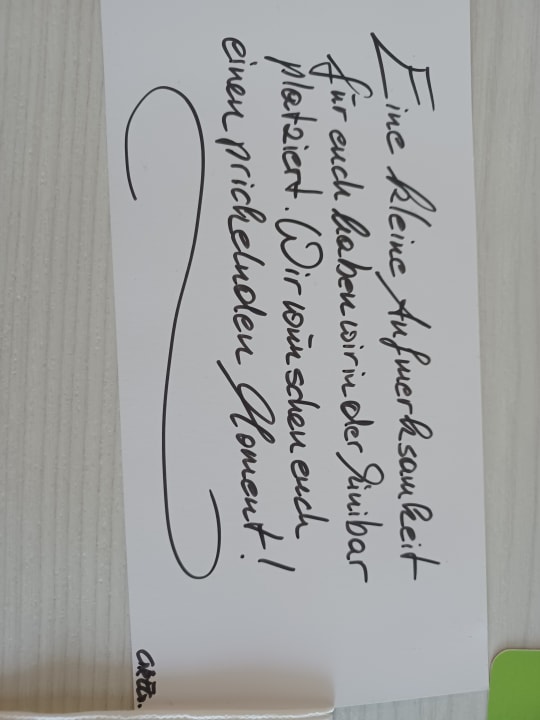 Eine kleine Aufmerksamkeit
für euch haben wir in der Minibar
platziert. Wir wünschen euch
einen prickelnden Moment!